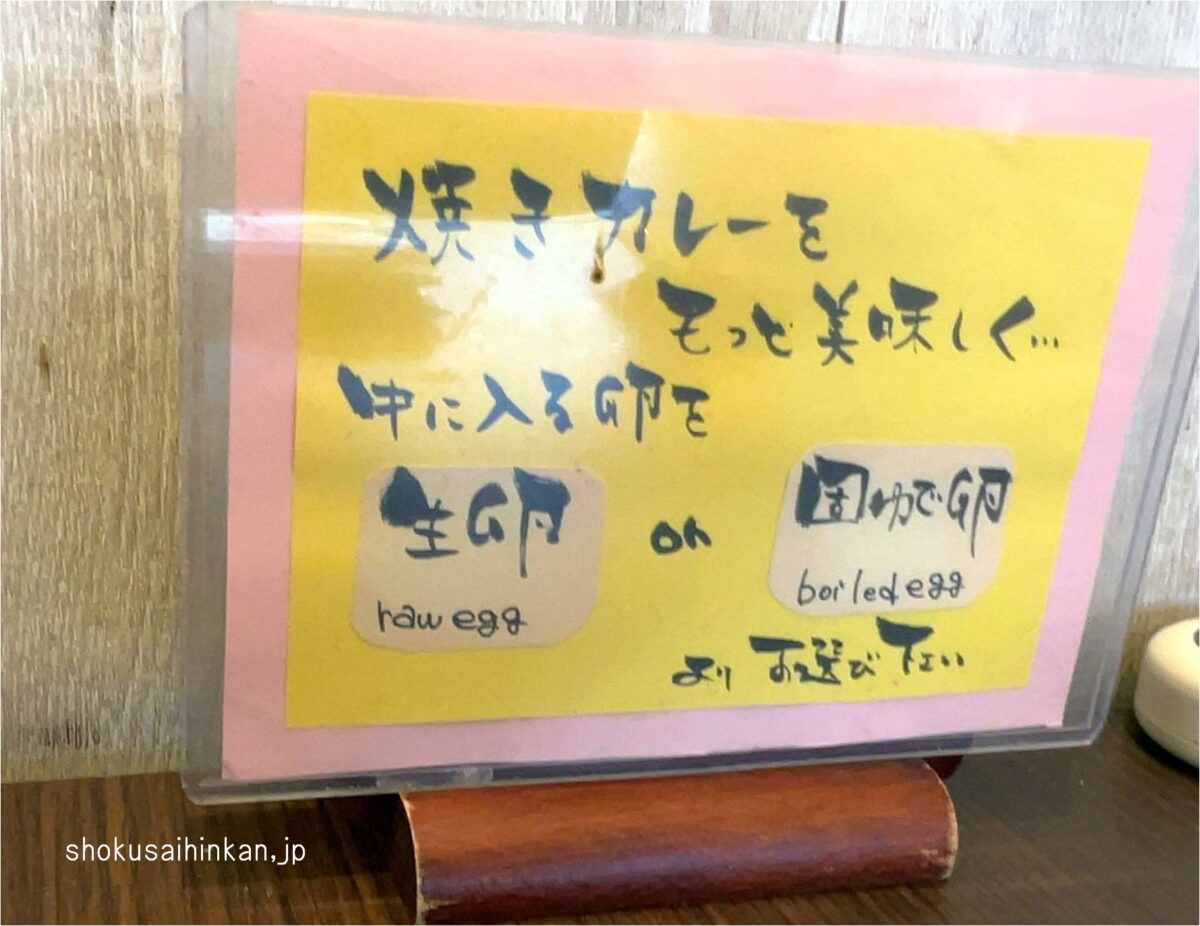 焼きカレーを
もっと美味しく…
中に入る卵を
生卵 or 固ゆで卵
raw egg boiled egg
よりお選び下さい
shokusaihinkan,jp